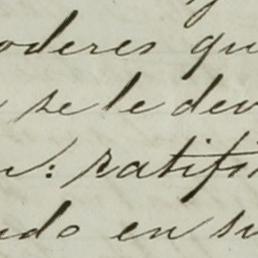 poderes qu
se le dev
: ratifi
do en su